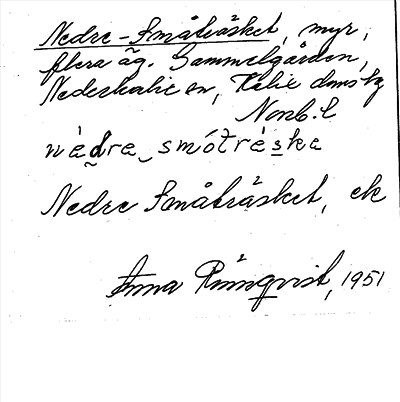 Nedre-Småträsket, myr,
flera äg. Gammelgården,
Nederkalix sn, Kalix domsbg
Norrb. l
nèdre smótrèska
Nedre Småträsket, ek
Anna Rönnqvist, 1951